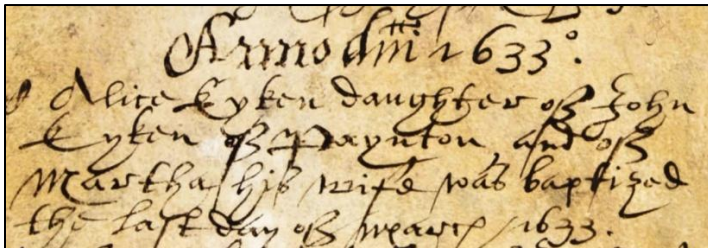 Anno dm̄i 1633°.
Alice Kyken daughter of John
Kyken of Paynton and of
Martha his wife was baptized
the last day of march 1633.